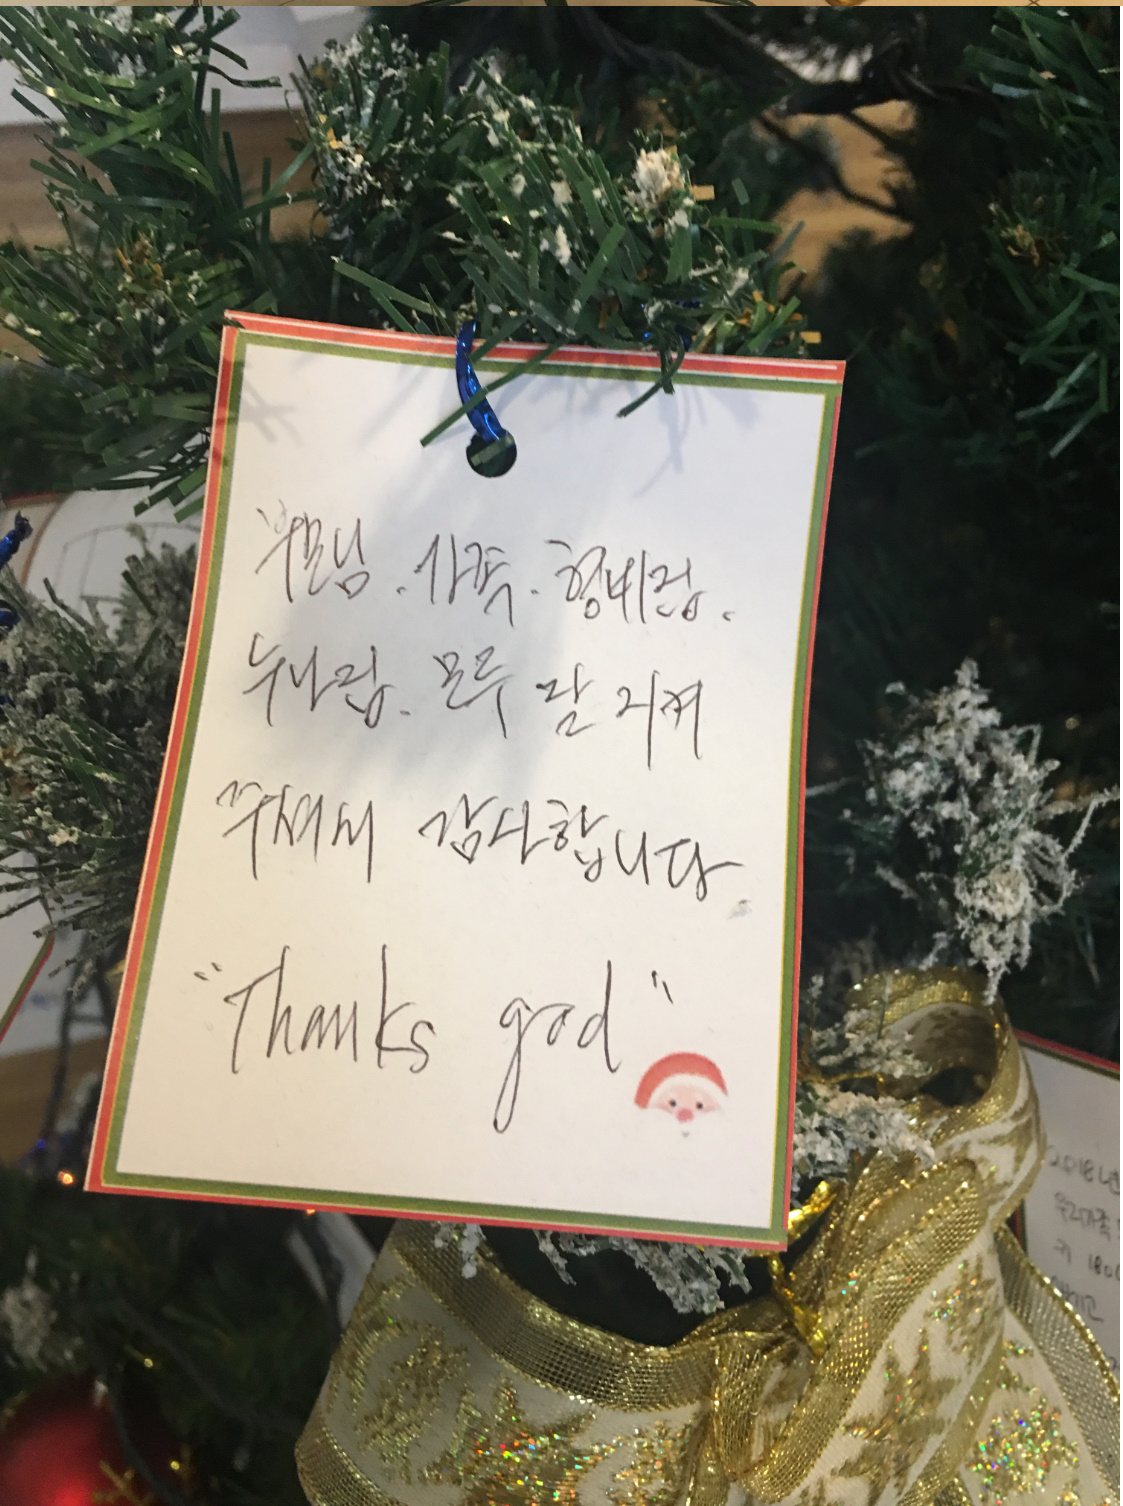 부모님. 가족. 형네랑.
누나랑. 모두 잘 지켜
주셔서 감사합니다.
"Thanks god"
2018년
우리가족
키 180